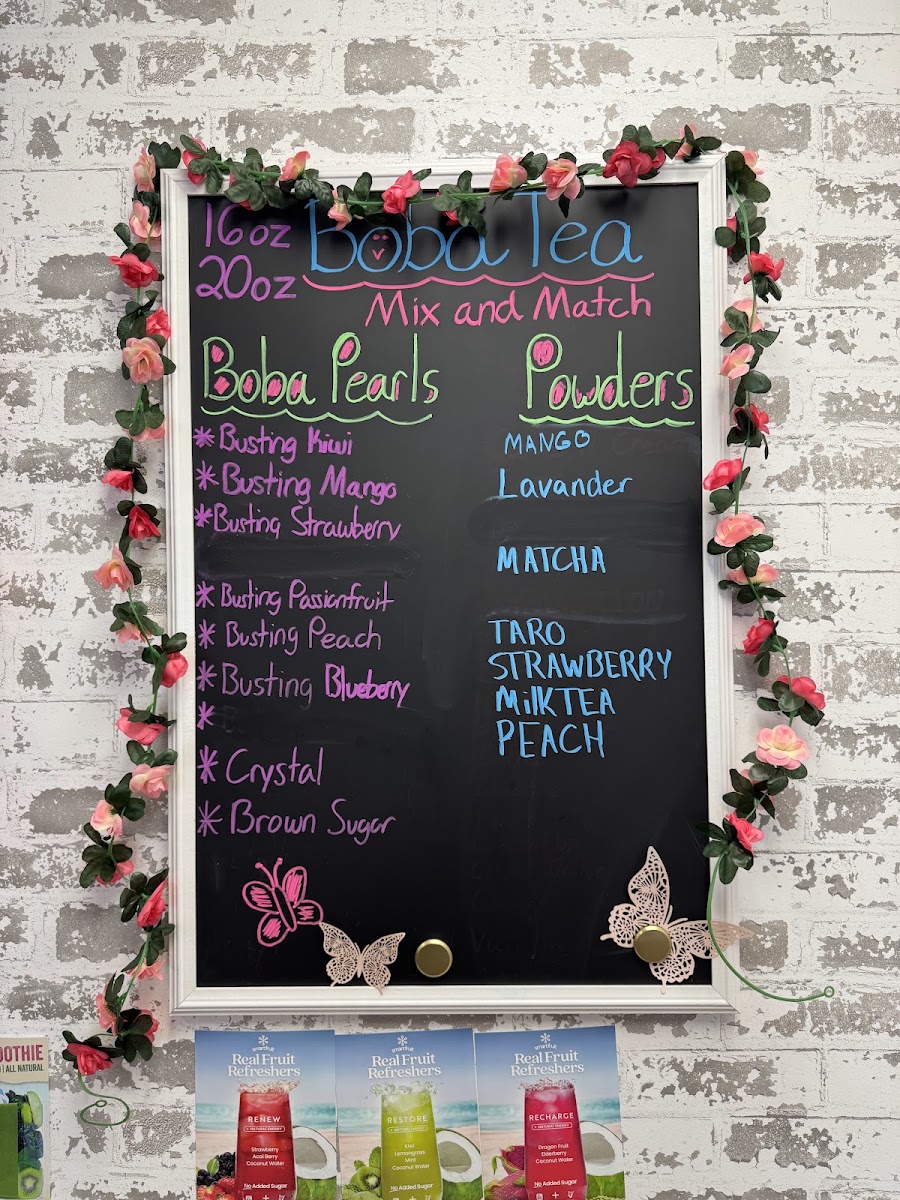 16oz
20oz
Boba Tea
Mix and Match
Boba Pearls
* Busting Kiwi
* Busting Mango
* Busting Strawberry
* Busting Passionfruit
* Busting Peach
* Busting Blueberry
*
* Crystal
* Brown Sugar
Powders
MANGO
Lavander
MATCHA
TARO
STRAWBERRY
MilKTEA
PEACH
OOTHIE
ALL NATURAL
smartfruit
Real Fruit
Refreshers
RENEW
+ NATURAL ENERGY
Strawberry
Acai Berry
Coconut Water
No Added Sugar
smartfruit
Real Fruit
Refreshers
RESTORE
+ NATURAL ENERGY
Kiwi
Lemongrass
Mint
Coconut Water
No Added Sugar
smartfruit
Real Fruit
Refreshers
RECHARGE
+ NATURAL ENERGY
Dragon Fruit
Elderberry
Coconut Water
No Added Sugar